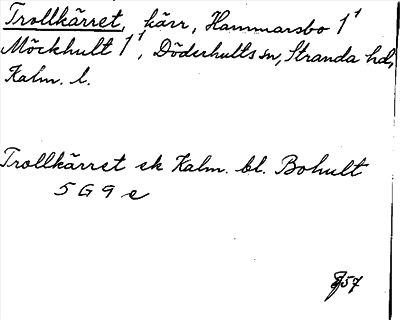 Trollkärret, kärr, Hammarsbo 1¹
Möckhult 1¹, Döderhults sn, Stranda hd,
Kalm. l.
Trollkärret ek Kalm. bl. Bohult
5 G 9 e
57